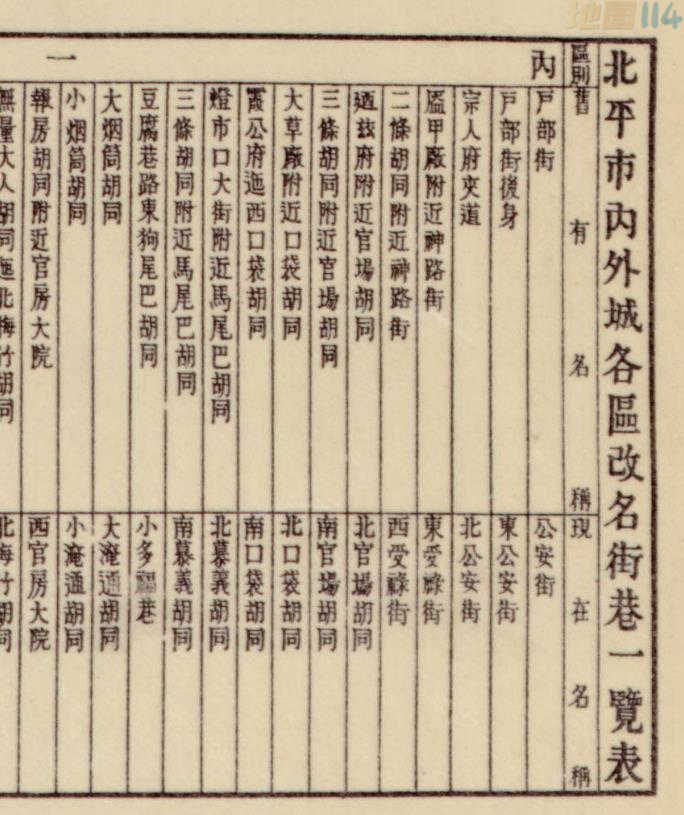 地圖114
北平市內外城各區改名街巷一覽表
區別
舊有名稱
現在名稱
內一
戶部街
公安街
戶部街後身
東公安街
宗人府夾道
北公安街
盔甲廠附近神路街
東受祿街
二條胡同附近神路街
西受祿街
迺茲府附近官場胡同
北官場胡同
三條胡同附近官場胡同
南官場胡同
大草廠附近口袋胡同
北口袋胡同
霞公府迤西口袋胡同
南口袋胡同
燈市口大街附近馬尾巴胡同
北慕義胡同
三條胡同附近馬尾巴胡同
南慕義胡同
豆腐巷路東狗尾巴胡同
小多福巷
大烟筒胡同
大淹通胡同
小烟筒胡同
小淹通胡同
報房胡同附近官房大院
西官房大院
無量大人胡同迤北梅竹胡同
北梅竹胡同